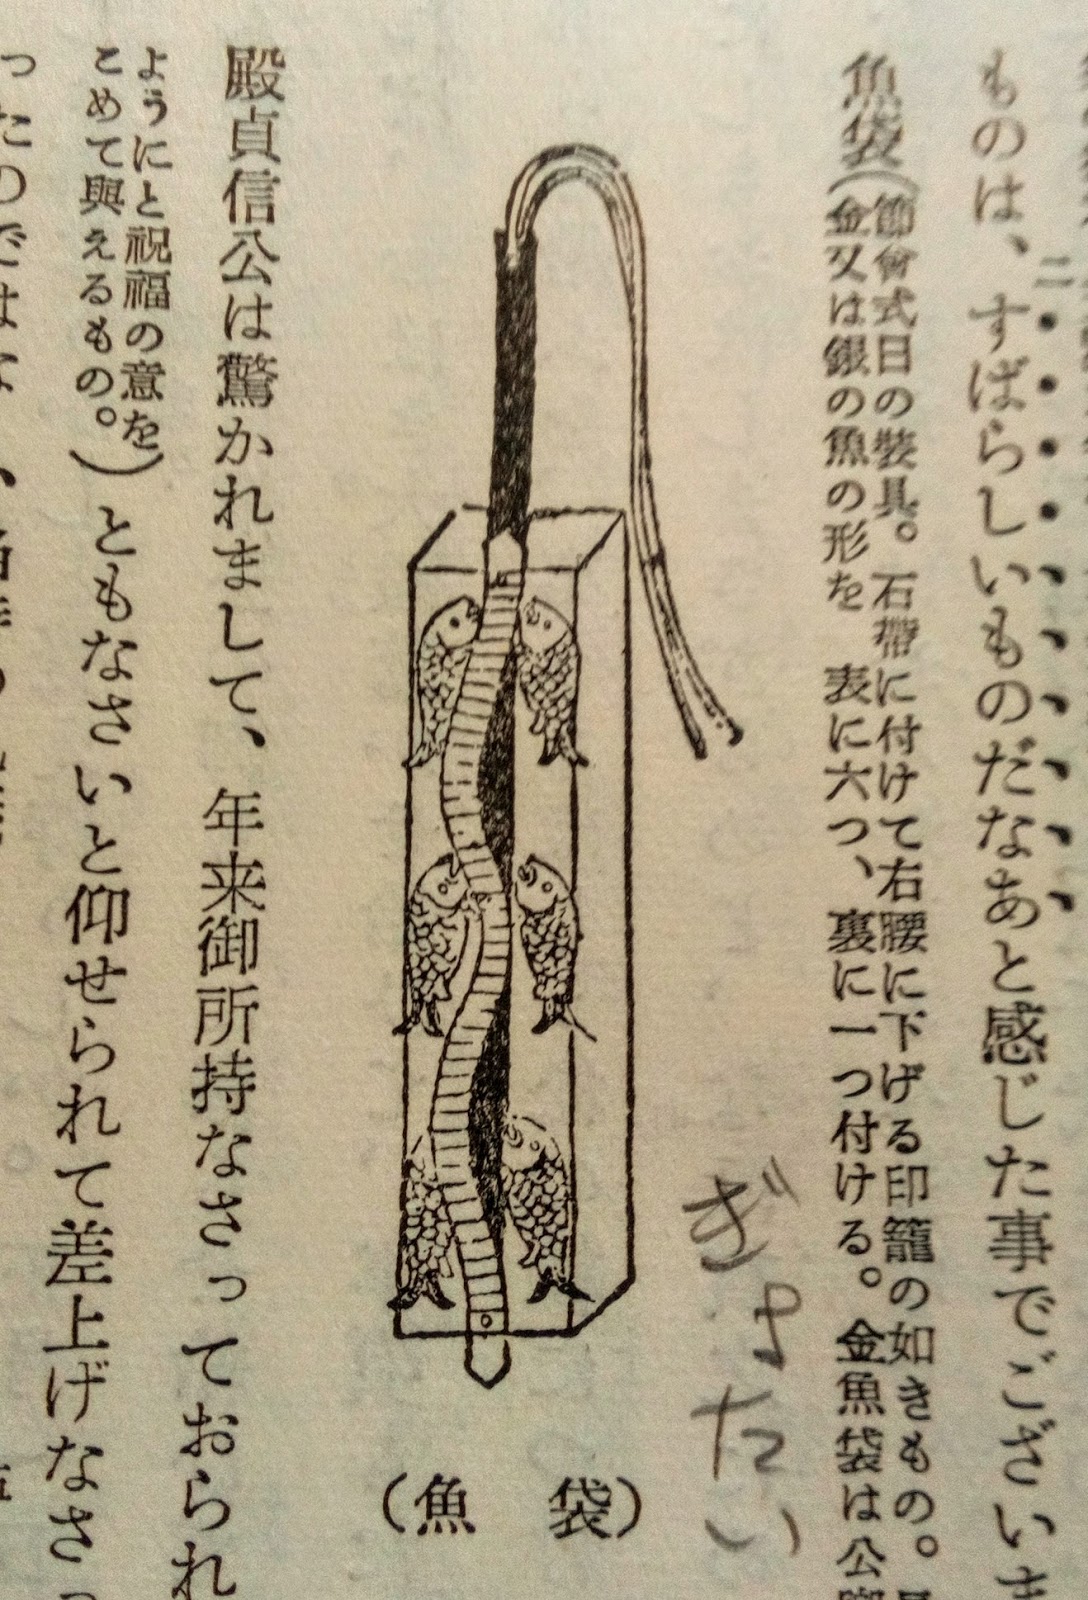 ものは、すばらしいものだなあと感じた事でございま
二
魚袋(節會式日の裝具。石帶に付けて右腰に下げる印籠の如きもの。
金又は銀の魚の形を　表に六つ、裏に一つ付ける。金魚袋は公
ぎよたい
(魚　袋)
殿貞信公は驚かれまして、年来御所持なさっておられ
ようにと祝福の意を
こめて與えるもの。)ともなさいと仰せられて差上げなさっ
ったのではな